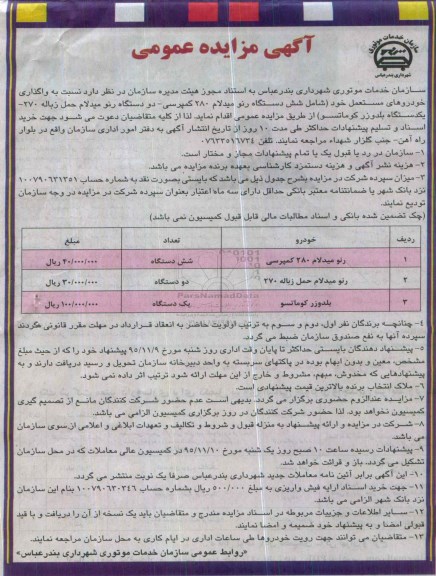 آگهی مزایده عمومی
سازمان خدمات موتوری
شهرداری بندرعباس
سازمان خدمات موتوری شهرداری بندرعباس به استناد مجوز هیئت مدیره سازمان در نظر دارد نسبت به واگذاری
خودروهای مستعمل خود (شامل شش دستگاه رنو میدلام ۲۸۰ کمپرسی- دو دستگاه رنو میدلام حمل زباله ۲۷۰-
یکدستگاه بلدوزر کوماتسو) از طریق مزایده عمومی اقدام نماید. لذا از کلیه متقاضیان دعوت می شود جهت خرید
اسناد و تسلیم پیشنهادات حداکثر طی مدت ۱۰ روز از تاریخ انتشار آگهی به دفتر امور اداری سازمان واقع در بلوار
راه آهن- جنب گلزار شهداء مراجعه نمایند. تلفن
۱- سازمان در رد یا قبول یک یا تمام پیشنهادات مجاز و مختار است.
۲- هزینه نشر آگهی و هزینه دستمزد کارشناسی بعهده برنده مزایده می باشد.
۳- میزان سپرده شرکت در مزایده بشرح جدول ذیل می باشد که بایستی بصورت نقد به شماره حساب ۱۰۰۷۹۰۶۳۱۳۵۱
نزد بانک شهر یا ضمانتنامه معتبر بانکی حداقل دارای سه ماه اعتبار بعنوان سپرده شرکت در مزایده در وجه سازمان
تودیع نمایند.
(چک تضمین شده بانکی و اسناد مطالبات مالی قابل قبول کمیسیون نمی باشد)
ردیف خودرو تعداد مبلغ
۱ رنو میدلام ۲۸۰ کمپرسی شش دستگاه ۴۰/۰۰۰/۰۰۰ ریال
۲ رنو میدلام حمل زباله ۲۷۰ دو دستگاه ۳۰/۰۰۰/۰۰۰ ریال
۳ بلدوزر کوماتسو یک دستگاه ۱۰۰/۰۰۰/۰۰۰ ریال
ParsNamadData
۴- چنانچه برندگان نفر اول، دوم و سوم به ترتیب اولویت حاضر به انعقاد قرارداد در مهلت مقرر قانونی نگردند
سپرده آنها به نفع صندوق سازمان ضبط می گردد.
۵- پیشنهاد دهندگان بایستی حداکثر تا پایان وقت اداری روز شنبه مورخ ۹۵/۱۱/۹ پیشنهاد خود را که از حیث مبلغ
مشخص، معین و بدون ابهام بوده در پاکتهای سربسته به واحد دبیرخانه سازمان تحویل و رسید دریافت دارند و به
پیشنهادهایی که مخدوش، مبهم، مشروط و خارج از این مهلت ارائه شود ترتیب اثر داده نمی شود.
۶- ملاک انتخاب برنده بالاترین قیمت پیشنهادی است.
۷- مزایده عندالزوم حضوری برگزار می گردد. بدیهی است عدم حضور شرکت کنندگان مانع از تصمیم گیری
کمیسیون نخواهد بود. لذا حضور شرکت کنندگان در روز برگزاری کمیسیون الزامی می باشد.
۸- شرکت در مزایده و ارائه پیشنهاد به منزله قبول و شروط و تکالیف و تعهدات ابلاغی و اعلامی از سوی سازمان
می باشد.
۹- پیشنهادات رسیده ساعت ۱۰ صبح روز یک شنبه مورخ ۹۵/۱۱/۱۰ در کمیسیون عالی معاملات که در محل سازمان
تشکیل می گردد، باز و قرائت خواهد شد.
۱۰- این آگهی برابر آئین نامه معاملات جدید شهرداری بندرعباس صرفا یک نوبت منتشر می گردد.
۱۱- جهت خرید اسناد ارایه فیش واریزی به مبلغ ۵۰۰/۰۰۰ ریال بشماره حساب ۱۰۰۷۹۰۶۳۰۳۴۶ بنام این سازمان
نزد بانک شهر الزامی می باشد.
۱۲- سایر اطلاعات و جزییات مربوطه در اسناد مزایده مندرج و متقاضیان باید یک نسخه از آن را دریافت و با قید
قبولی امضا و به پیشنهاد خود ضمیمه و امضا نمایند.
۱۳- متقاضیان می توانند جهت رویت خودروها طی ساعات اداری در ایام کاری به محل سازمان مراجعه نمایند.
«روابط عمومی سازمان خدمات موتوری شهرداری بندرعباس»